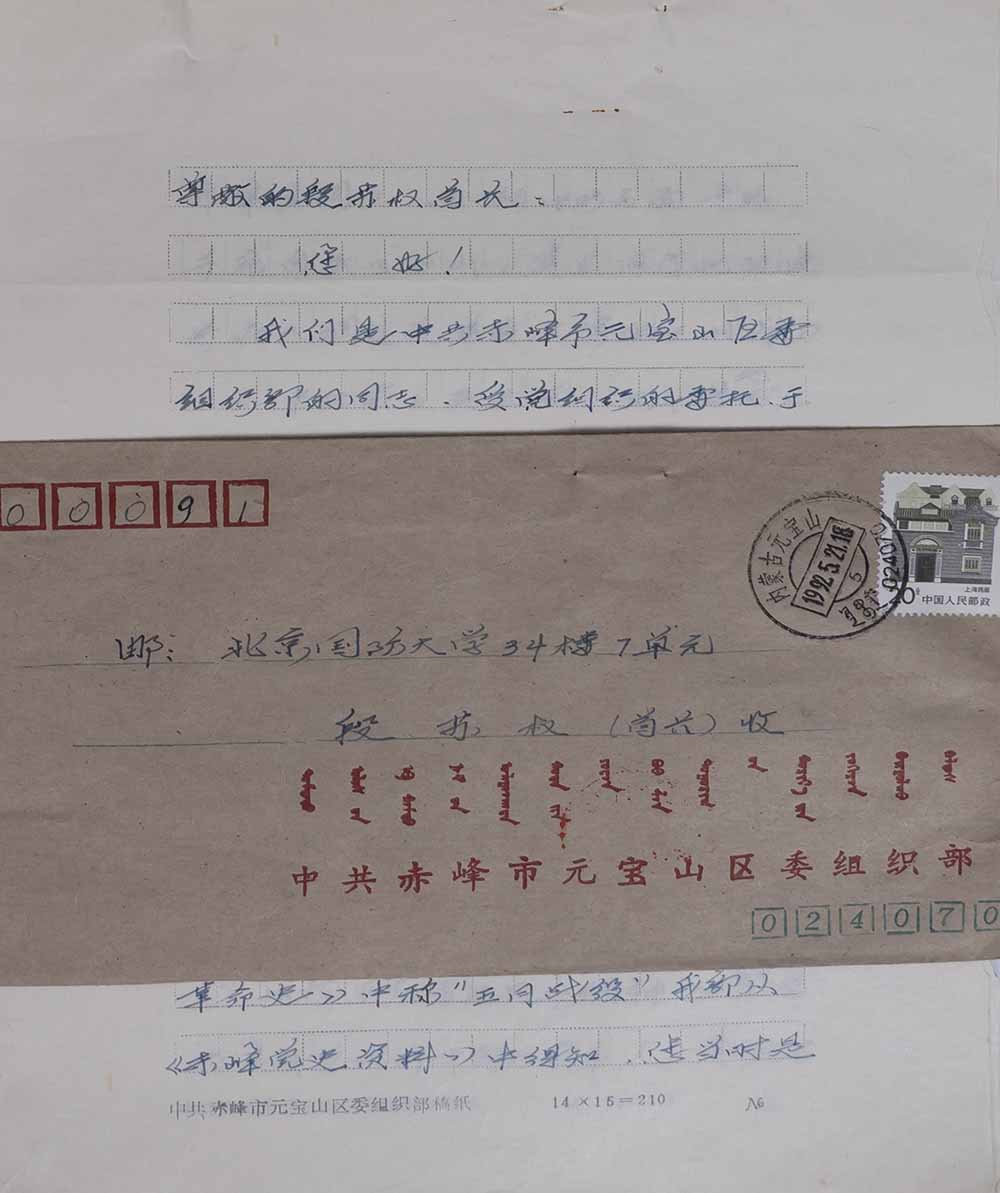 尊敬的段苏权首长：
您好！
我们是中共赤峰市元宝山区委
组织部的同志．受党组织的委托、于
00091
内蒙古元宝山
1992.5.21.18
5
024070
上海民居
中国人民邮政
邮：北京国防大学34楼7单元
段苏权（首长）收
中共赤峰市元宝山区委组织部
024070
革命史》中称“五月战役”我部从
《赤峰党史资料》中得知．您当时是
中共赤峰市元宝山区委组织部稿纸 14×15=210 №